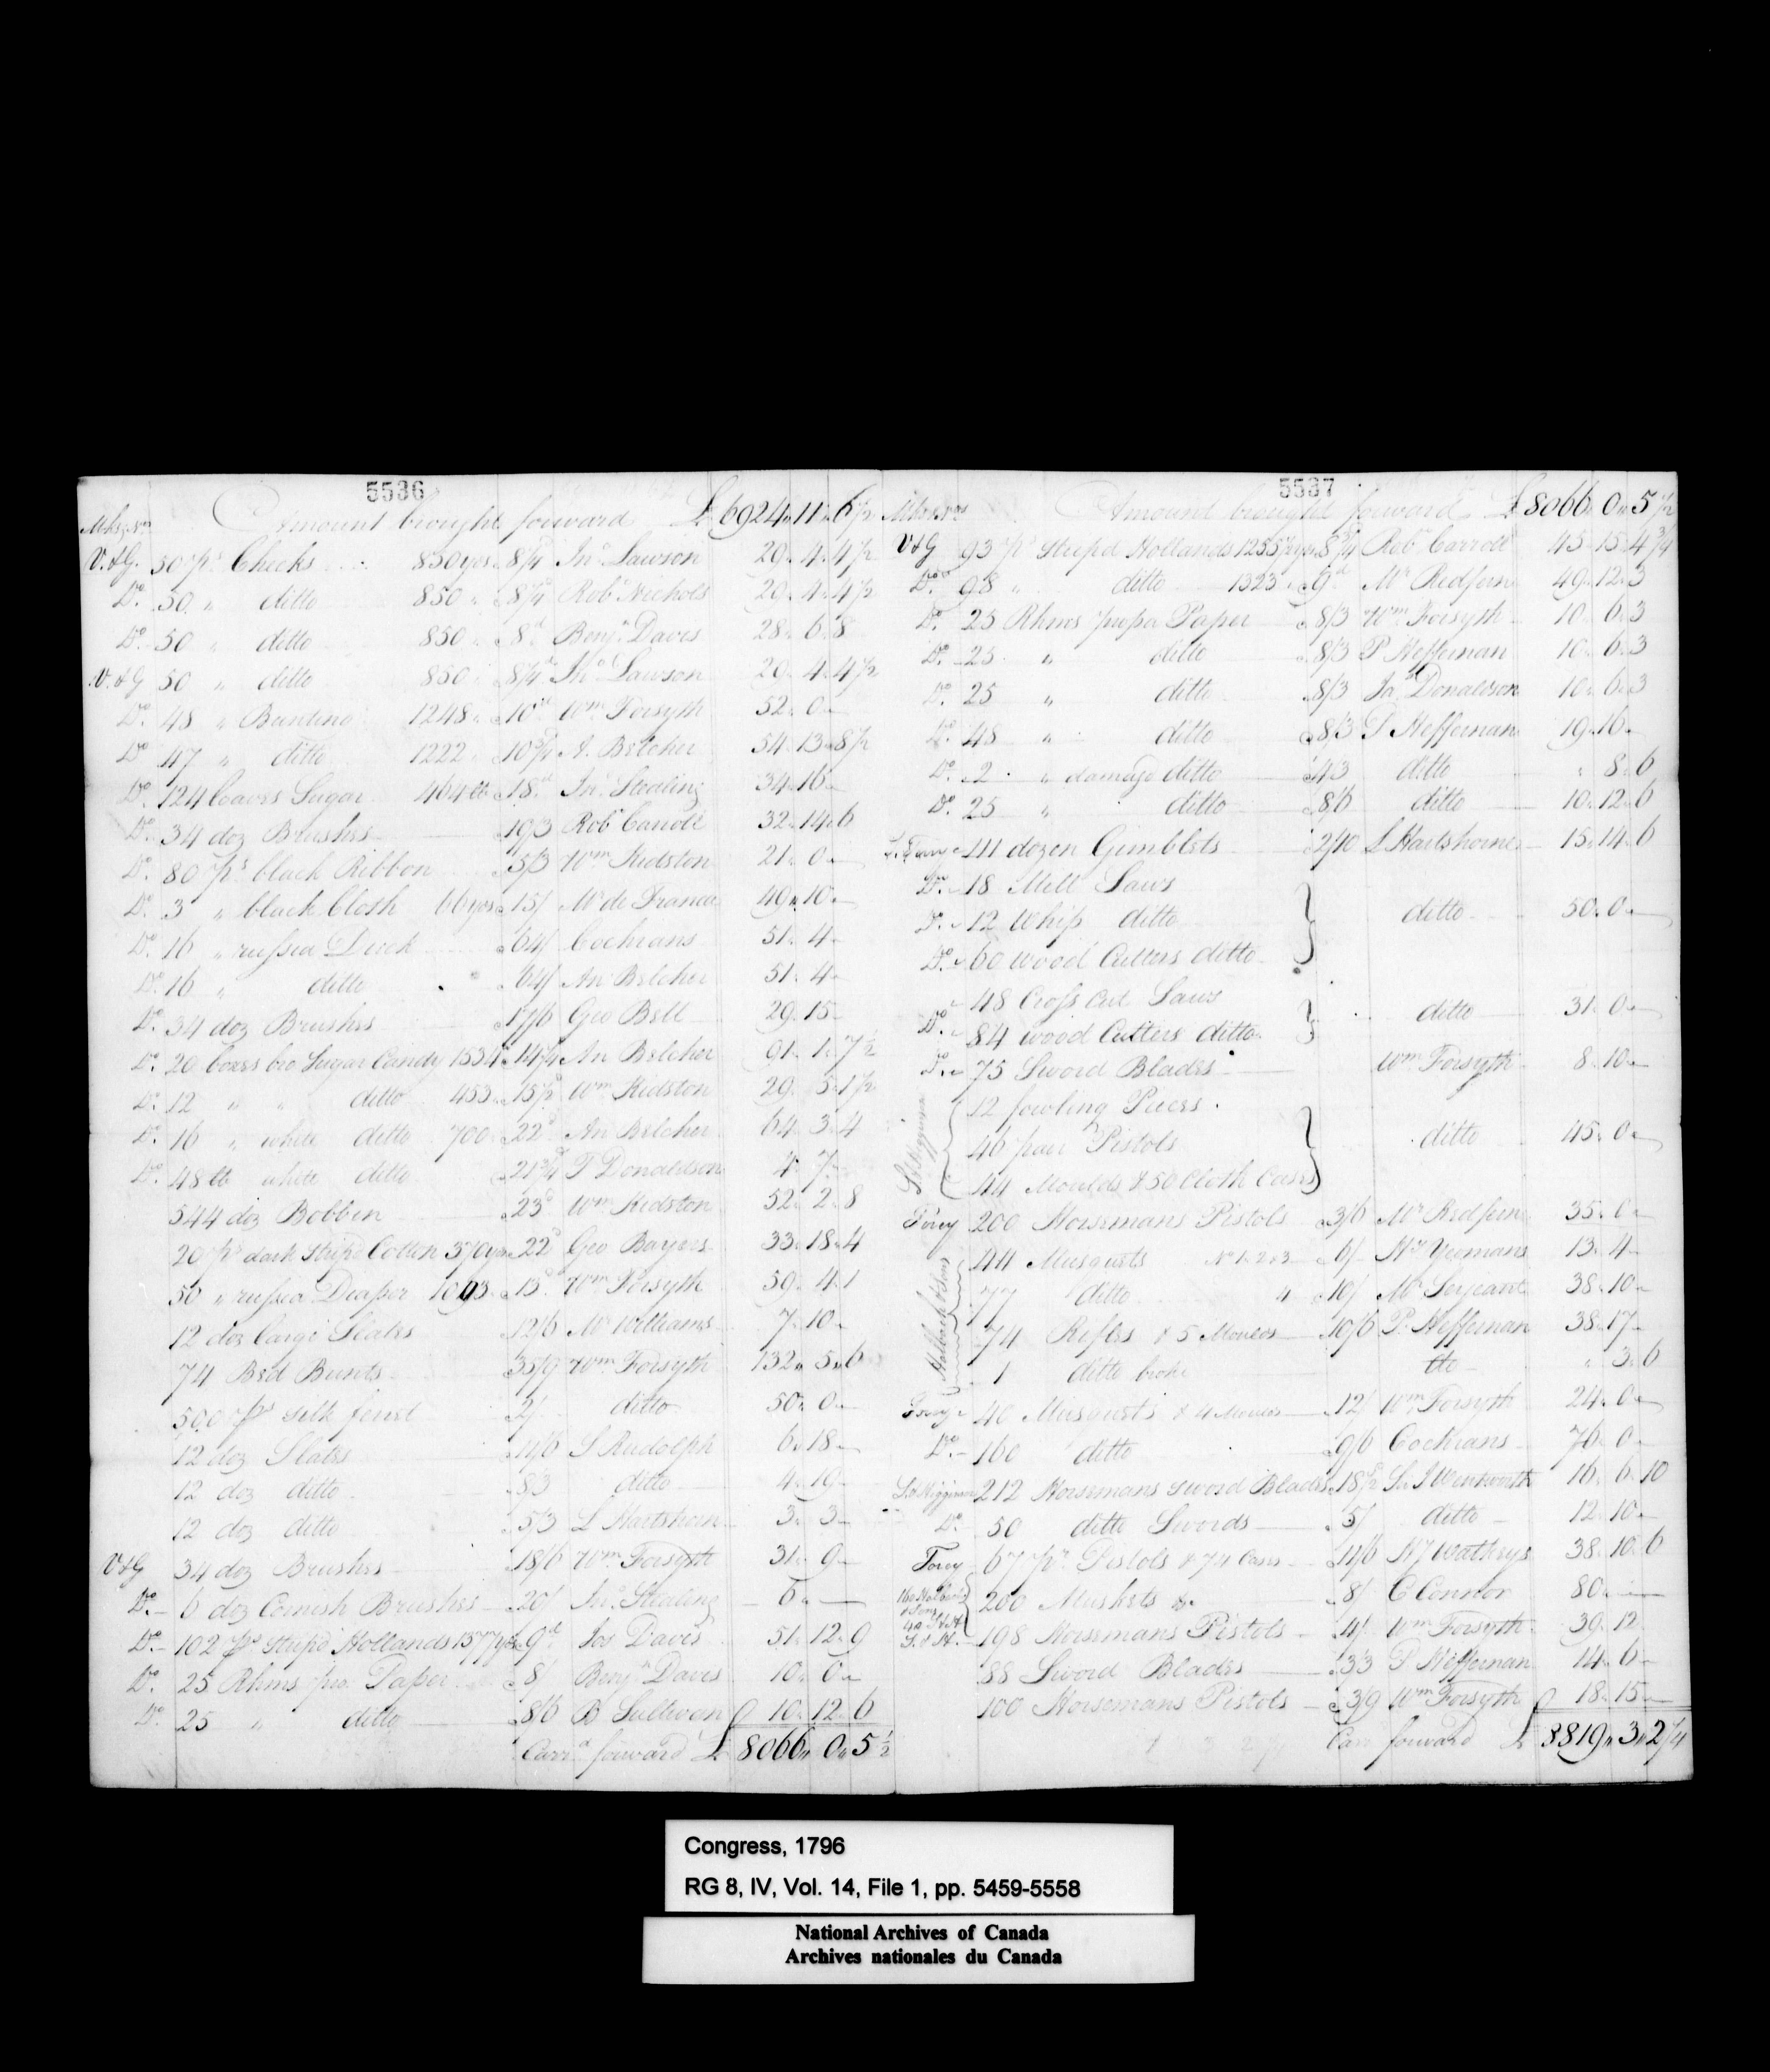 5536
Mks & Nos Amount brought forward £ 6924 " 11 " 6 1/2
V.&G. 50 ps Checks 850 yds @ 8 1/4 Jno Lawson 29 " 4 " 4 1/2
Do 50 " ditto 850 " @ 8 1/4 Robt Nichols 29 " 4 " 4 1/2
Do 50 " ditto 850 " @ 8d Benjn Davis 28 " 6 " 8
V.&G 50 " ditto 850 " @ 8 1/4 Jno Lawson 29 " 4 " 4 1/2
Do 48 " Bunting 1248 " @ 10d Wm Forsyth 52 " 0 "
Do 47 " ditto 1222 " @ 10 3/4 A. Belcher 54 " 13 " 8 1/2
Do 124 loaves Sugar 464 lb @ 18d Jno Stealing 34 " 16 "
Do 34 doz Brushes @ 19/3 Robt Carroll 32 " 14 " 6
Do 80 ps black Ribbon @ 5/3 Wm Kidston 21 " 0 "
Do 3 " black Cloth 66 yds @ 15/ Mr de Franca 49 " 10 "
Do 16 " russia Duck @ 64/ Cochrans 51 " 4 "
Do 16 " ditto @ 64/ An Belcher 51 " 4 "
Do 34 doz Brushes @ 17/6 Geo Bell 29 " 15
Do 20 boxes bro Sugar Candy 1534 @ 14 1/4 An Belcher 91 " 1 " 7 1/2
Do 12 " " ditto 453 @ 15 1/2 Wm Kidston 29 " 5 " 1 1/2
Do 16 " white ditto 700 @ 22d An Belcher 64 " 3 " 4
Do 48 lb white ditto @ 21 3/4 T Donaldson 4 " 7 "
544 doz Bobbin @ 23d Wm Kidston 52 " 2 " 8
20 ps dark Stripe Cotton 370 yds @ 22d Geo Bayers 33 " 18 " 4
50 " russia Diaper 1093 @ 13d Wm Forsyth 59 " 4 " 1
12 doz large Slates @ 12/6 Mr Williams 7 " 10 "
74 Bed Bunts @ 35/9 Wm Forsyth 132 " 5 " 6
500 ps silk ferret @ 2/ ditto 50 " 0 "
12 doz Slates @ 11/6 S Rudolph 6 " 18 "
12 doz ditto @ 8/3 ditto 4 " 19
12 doz ditto @ 5/3 L Hartshorn 3 " 3
V&G 34 doz Brushes @ 18/6 Wm Forsyth 31 " 9
Do 6 doz Cornish Brushes @ 20/ Jno Stealing 6 "
Do 102 ps Stripd Hollands 1377 yds @ 9d Jos Davis 51 " 12 " 9
Do 25 Rhms pro Paper @ 8/ Benjn Davis 10 " 0 "
Do 25 " ditto @ 8/6 B Sullivan 10 " 12 " 6
Carrd forward £ 8066 " 0 " 5 1/2
5537
Mks & Nos Amount brought forward £ 8066 " 0 " 5 1/2
V&G 93 ps Stripd Hollands 1255 1/2 yds @ 8 3/4 Robt Carroll 45 " 15 " 4 3/4
Do 98 " ditto 1323 " @ 9d Mr Redfern 49 " 12 " 3
Do 25 Rhms propa Paper @ 8/3 Wm Forsyth 10 " 6 " 3
Do 25 " ditto @ 8/3 P Heffernan 10 " 6 " 3
Do 25 " ditto @ 8/3 Jas Donaldson 10 " 6 " 3
Do 48 " ditto @ 8/3 P Heffernan 19 " 16 "
Do 2 " damage ditto @ 4/3 ditto " 8 " 6
Do 25 " ditto @ 8/6 ditto 10 " 12 " 6
111 dozen Gimblets @ 2/10 L Hartshorne 15 " 14 " 6
Do 18 Mill Saws
Do 12 Whip ditto ditto 50 " 0 "
Do 60 Wood Cutters ditto
48 Cross Cut Saws
Do 84 wood Cutters ditto ditto 31 " 0 "
Do 75 Sword Blades Wm Forsyth 8 " 10 "
12 fowling Pieces
46 pair Pistols ditto 45 " 0 "
44 Moulds & 50 Cloth Cases
200 Horsemans Pistols @ 3/6 Mr Redfern 35 " 0
44 Musquets No 1. 2 & 3 @ 6/ Mr Yeomans 13 " 4
Holbach & Sons 77 ditto 4 @ 10/ Mr Serjeant 38 " 10
74 Rifles & 5 Moulds @ 10/6 P. Heffernan 38 " 17
1 ditto broke tto " 3 " 6
40 Musquets & 4 Moulds @ 12/ Wm Forsyth 24 " 0 "
Do 160 ditto @ 9/6 Cochrans 76 " 0
212 Horsemans sword Blades @ 18 1/2 Sir J Wentworth 16 " 6 " 10
Do 50 ditto Swords @ 5/ ditto 12 " 10
67 pr Pistols & 74 Cases @ 11/6 38 " 10 " 6
200 Muskets @ 8/ C Connor 80 "
198 Horsemans Pistols @ 4/ Wm Forsyth 39 " 12
88 Sword Blades @ 3/3 P Heffernan 14 " 6
100 Horsemans Pistols @ 3/9 Wm Forsyth 18 " 15
Carr forward £ 8819 " 3 " 2 1/4
Congress, 1796
RG 8, IV, Vol. 14, File 1, pp. 5459-5558
National Archives of Canada
Archives nationales du Canada